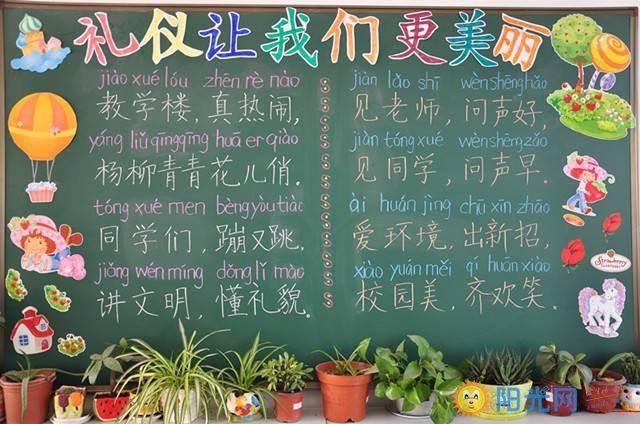 礼仪让我们更美丽
jiào xué lóu zhēn rè nào
教学楼,真热闹,
yáng liǔ qīng qīng huā er qiào
杨柳青青花儿俏.
tóng xué men bèng yòu tiào
同学们,蹦又跳,
jiǎng wén míng dǒng lǐ mào
讲文明,懂礼貌.
jiàn lǎo shī wèn shēng hǎo
见老师,问声好,
jiàn tóng xué wèn shēng zǎo
见同学,问声早.
ài huán jìng chū xīn zhāo
爱环境,出新招,
xiào yuán měi qí huān xiào
校园美,齐欢笑.
Strawberry
阳光网